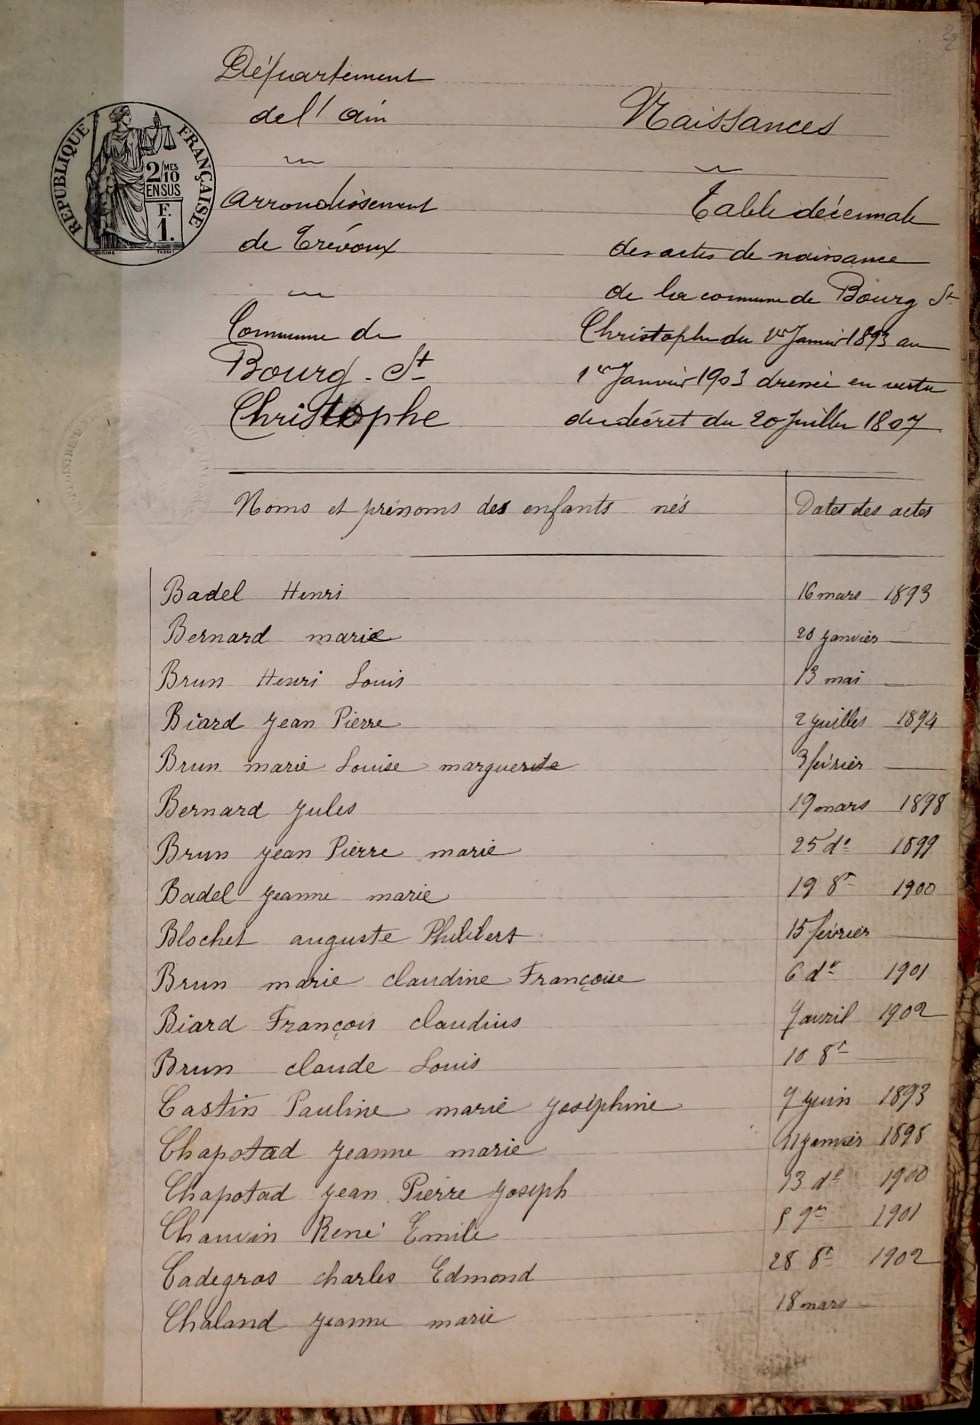 Département
de l'Ain
Arrondissement
de Trévoux
Commune de
Bourg-St
Christophe
RÉPUBLIQUE FRANÇAISE
2/10 MES
EN SUS
F.
1.
Naissances
Table décennale
des actes de naissance
de la commune de Bourg St
Christophe du 1er Janvier 1893 au
1er Janvier 1903 dressée en vertu
du décret du 20 Juillet 1807
Noms et prénoms des enfants nés Dates des actes
Badel Henri 16 mars 1893
Bernard marie 20 janvier —
Brun Henri Louis 13 mai —
Biard Jean Pierre 2 juillet 1894
Brun marie Louise marguerite 3 février —
Bernard Jules 19 mars 1898
Brun Jean Pierre marie 25 do 1899
Badel Jeanne marie 19 8re 1900
Blochet auguste Philibert 15 février —
Brun marie claudine Françoise 6 do 1901
Biard François claudius 7 avril 1902
Brun claude Louis 10 8re —
Castin Pauline marie Joséphine 7 juin 1893
Chapotad Jeanne marie janvier 1898
Chapotad Jean Pierre Joseph 13 do 1900
Chauvin René Emile 5 9re 1901
Cadegros charles Edmond 28 8re 1902
Chaland Jeanne marie 18 mars —